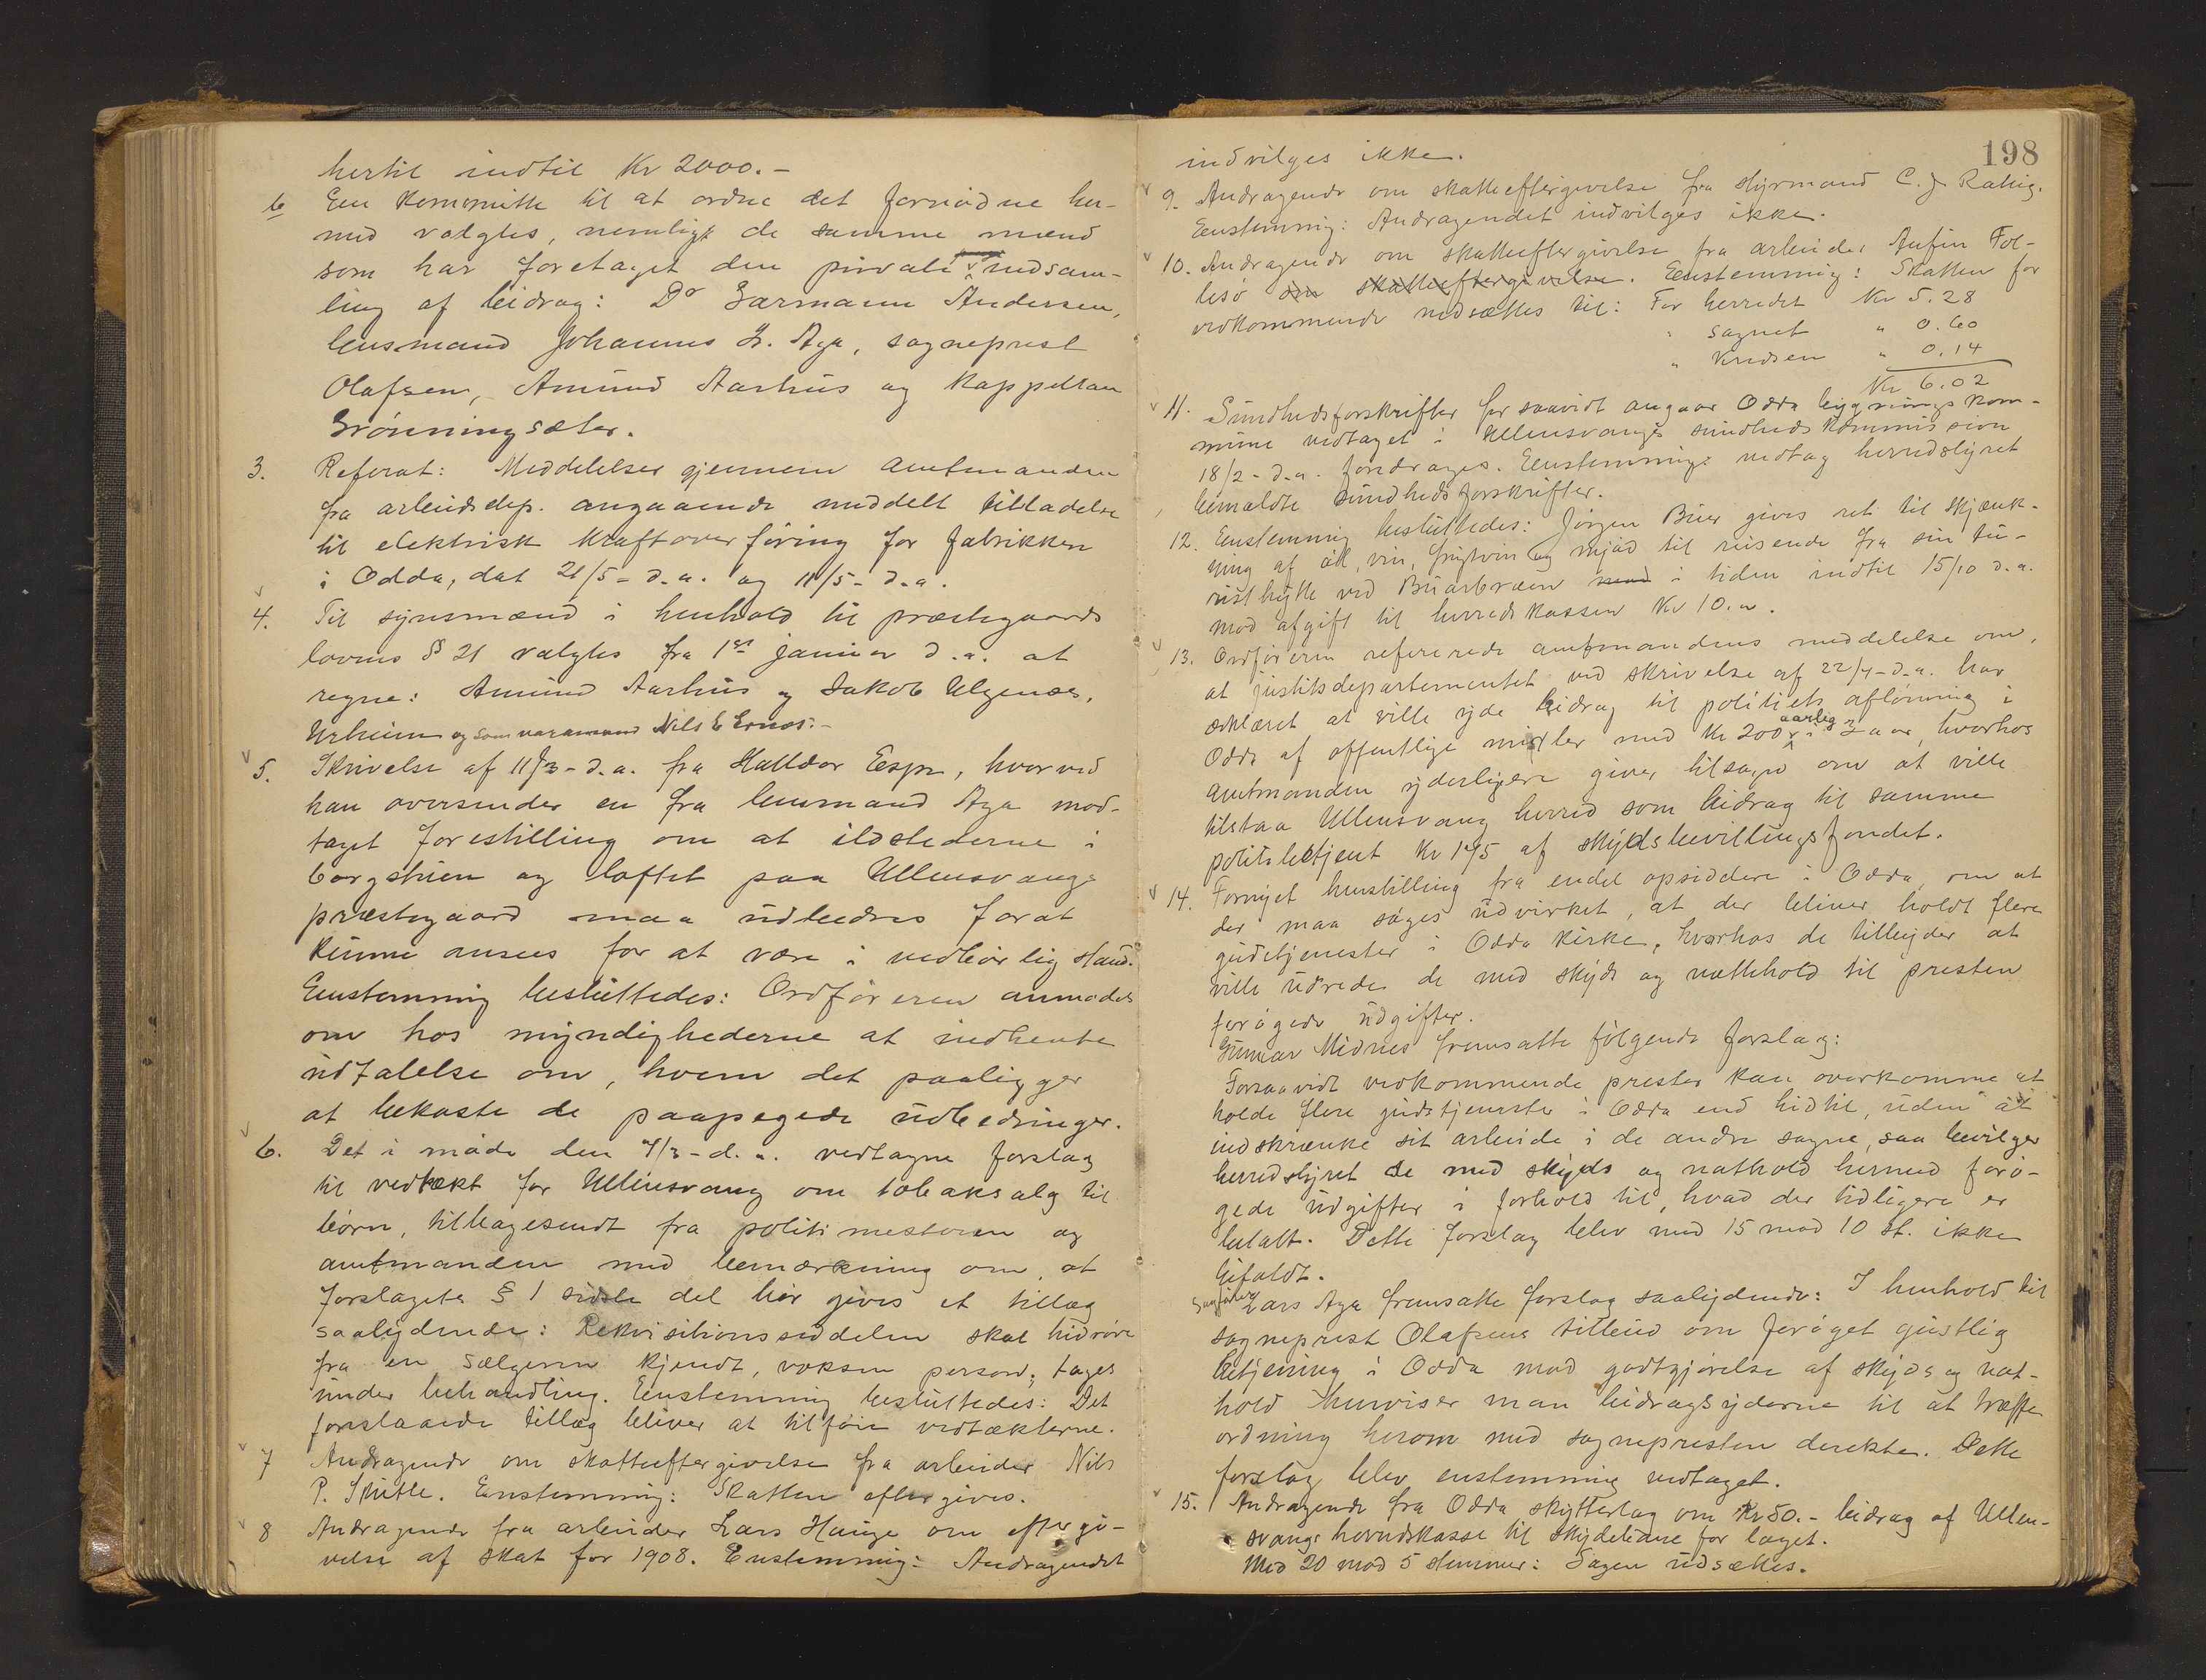 hertil indtil Kr 2000.-
b Een Kommitte til at ordne det fornødne her-
med valgtes, nemligt de samme mænd
som har foretaget den private indsam-
ling af bidrag: Dr Garmann Andersen,
lensmand Johannes L. Aga, sogneprest
Olafsen, Amund Aarhus og Kappellan
Grønningsæter.
3. Referat: Meddelelser gjennem amtmanden
fra arbeidsdep. angaaende meddelt tilladelse
til elektrisk Kraftoverføring for fabrikken
i Odda, dat 21/5- d.a. og 11/5- d.a.
4. Til synsmænd i henhold til præstegaards
lovens § 21 valgtes fra 1ste januar d.a. at
regne: Amund Aarhus og Jakob Ulgenæs,
Urheim og som varamand Nils E Ernes.-
5. Skrivelse af 11/3- d.a. fra Halldor Espe, hvorved
han oversender en fra lensmand Aga mod-
taget forestilling om at ildstederne i
borgstuen og loftet paa Ullensvangs
præstegaard maa udbedres forat
kunne ansees for at være i vedbørlig stand.
Eenstemmig besluttedes: Ordføreren anmodes
om hos myndighederne at indhente
udtalelse om, hvem det paaligger
at bekoste de paapegede udbedringer.
6. Det i møde den 4/3- d.a. vedtagne forslag
til vedtækt for Ullensvang om tobaksalg til
børn, tilbagesendt fra politimesteren og
amtmanden med bemærkning om, at
forslagets § 1 sidste del bør gives et tillæg
saalydende: Rekvisitionsseddelen skal hidrøre
fra en sælgeren kjendt, voksen person; tages
under behandling. Eenstemmig besluttedes: Det
foreslaaede tillæg bliver at tilføie vedtækterne.
7 Andragende om skatteeftergivelse fra arbeider Nils
P. Skutle. Eenstemmig: Skatten eftergives.
8 Andragende fra arbeider Lars Hauge om eftergi-
velse af skat for 1908. Enstemmig: Andragendet
198
indvilges ikke.
9. Andragende om skatteeftergivelse fra styrmand C. J. Rattig.
Eenstemmig: Andragendet indvilges ikke.
10. Andragende om skatteeftergivelse fra arbeider Anfin Fol-
lesø om skatteeftergivelse. Eenstemmig: Skatten for
vedkommende nedsættes til: For herredet Kr 5.28
" sognet " 0.60
" Kredsen " 0.14
Kr 6.02
11. Sundhedsforskrifter for saavidt angaar Odda bygningskom-
mune vedtaget i Ullensvangs sundhedskommission
18/2- d.a. foredrages. Eenstemmigt vedtog herredstyret
bemældte sundhedsforskrifter.
12. Eenstemmig besluttedes: Jørgen Buer gives ret til skjænk-
ning af øl, vin, frugtvin og mjød til reisende fra sin tu-
risthytte ved Buarbræen mod i tiden indtil 15/10 d.a.
mod afgift til herredskassen Kr 10.00.
13. Ordføreren refererede amtmandens meddelelse om,
at justitsdepartementet ved skrivelse af 22/4- d.a. har
erklæret at ville yde bidrag til politiets aflønning i
Odda af offentlige midler med Kr 200 aarlig i 2 aar, hvorhos
amtmanden yderligere giver tilsagn om at ville
tilstaa Ullensvang herred som bidrag til samme
politibetjent Kr 175 af skydsbevillingsfondet.
14. Fornyet henstilling fra endel opsiddere i Odda om at
der maa søges udvirket, at der bliver holdt flere
gudstjenester i Odda Kirke, hvorhos de tilbyder at
ville udrede de med skyds og nattehold til presten
forøgede udgifter.
Gunnar Midnes fremsatte følgende forslag:
Forsaavidt vedkommende prester kan overkomme at
holde flere gudstjenester i Odda end hidtil, uden at
indskrænke sit arbeide i de andre sogne, saa bevilger
herredstyret de med skyds og nathold hermed forø-
gede udgifter i forhold til, hvad der tidligere er
betalt. Dette forslag blev med 15 mod 10 st. ikke
bifaldt.
Sagfører Lars Aga fremsatte forslag saalydende: I henhold til
sogneprest Olafsens tilbud om forøget geistlig
betjening i Odda mod godtgjørelse af skyds og nat-
hold henviser man bidragsyderne til at træffe
ordning herom med sognepresten direkte. Dette
forslag blev enstemmig vedtaget.
15. Andragende fra Odda skytterlag om Kr 50.- bidrag af Ullen-
svangs herredskasse til skydebane for laget.
Med 20 mod 5 stemmer: Sagen udsættes.